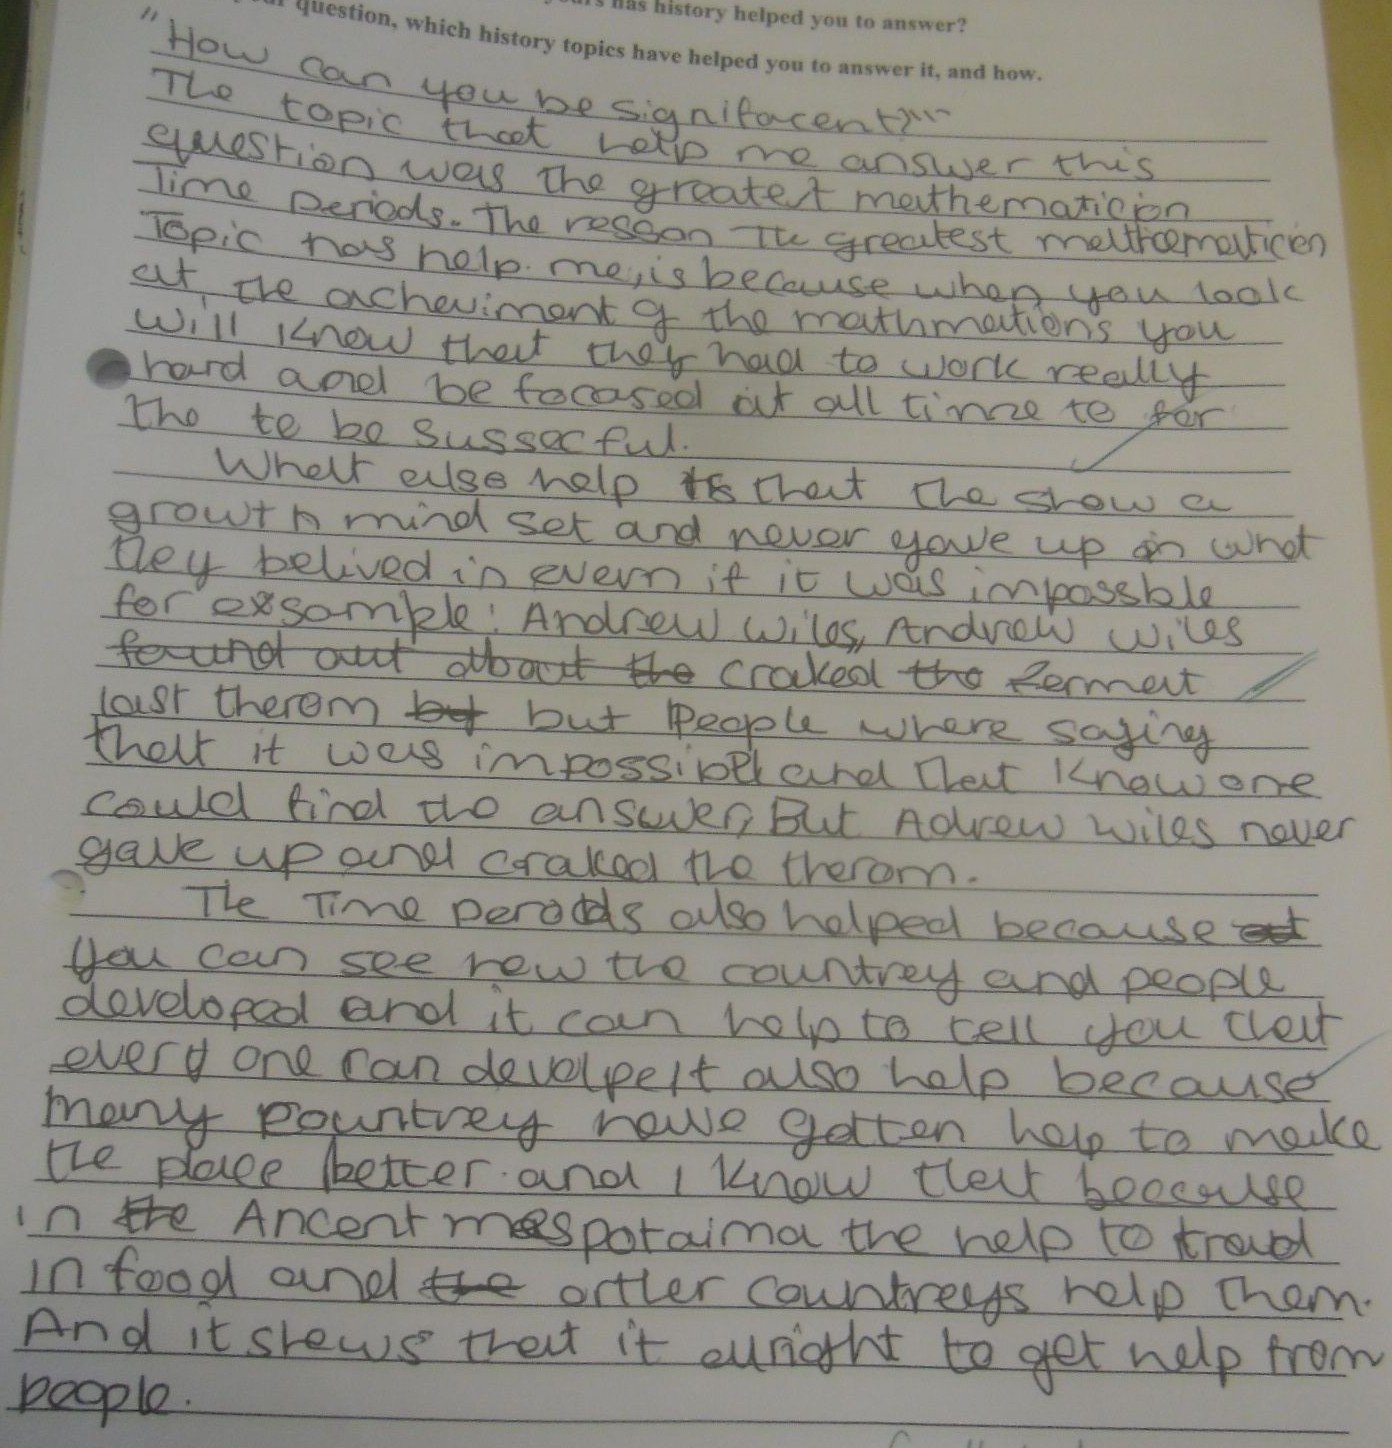 has history helped you to answer?
question, which history topics have helped you to answer it, and how.
"How can you be signifacent?"
The topic that help me answer this
question was the greatest mathematicion
Time periods. The reason The greatest mathematicien
Topic has help me, is because when you look
at the acheviment of the mathmations you
will know that they had to work really
hard and be focased at all time to for
the to be sussecful.
What also help is that the show a
growth mind set and never gave up in what
they belived in evern if it was impossble
for exsample: Andrew Wiles, Andrew Wiles
found out about the craked the fermat
last therom but but People where saying
that it was impossibel and that Knowone
could find the answer, But Adrew Wiles never
gave up and craked the therom.
The Time perodds also helped because
you can see how the countrey and people
developed and it can help to tell you that
every one can devolpe It also help because
many countrey have gotten help to make
the place better. and I know that because
in the Ancent mespotaima the help to trad
in food and the orther countreys help them.
And it shews that it alright to get help from
people.